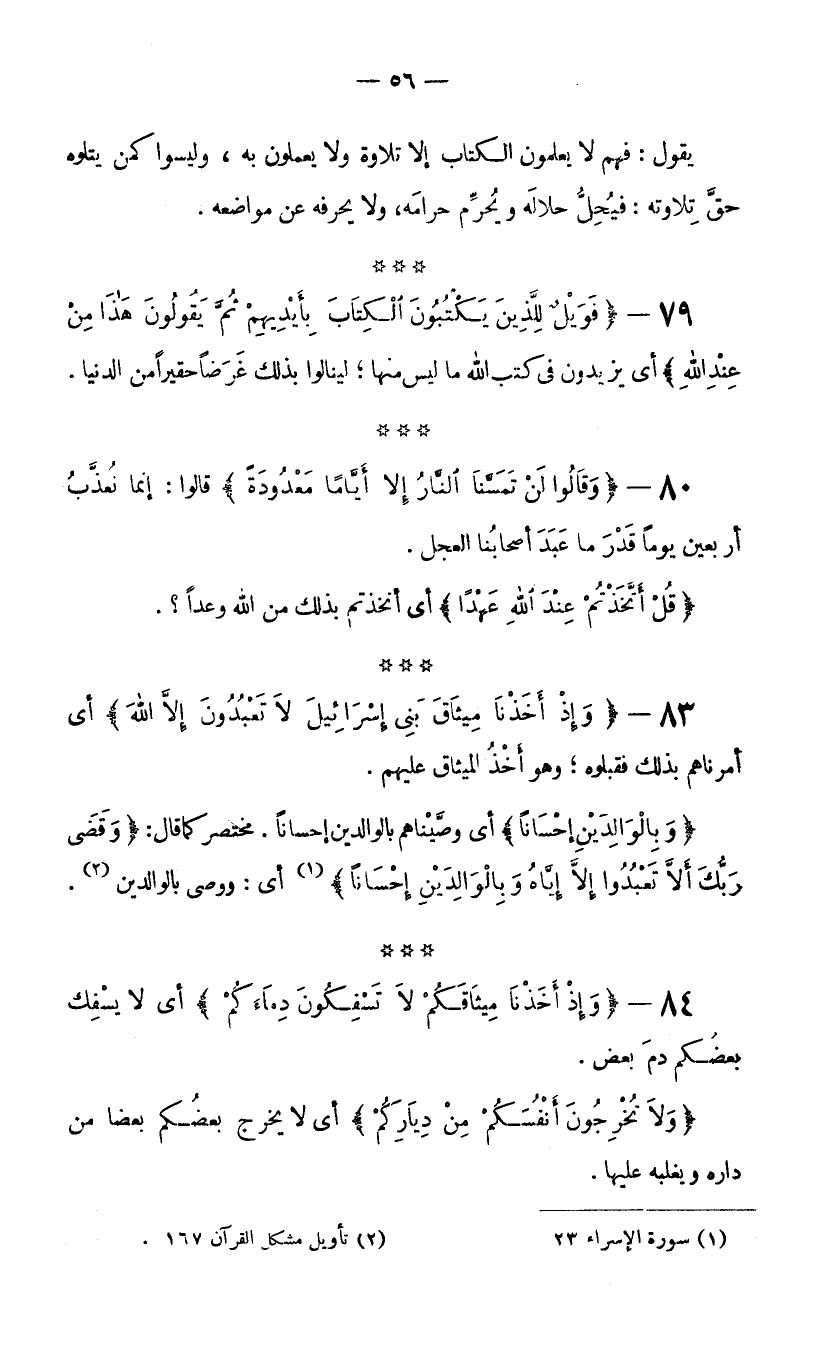 — ٥٦ —
يقول : فهم لا يعلمون الكتاب إلا تلاوة ولا يعملون به ، وليسوا كمن يتلوه
حقَّ تِلاوته : فيُحِلُّ حلالَه ويُحرِّم حرامَه، ولا يحرفه عن مواضعه .
☆ ☆ ☆
٧٩ — ﴿ فَوَيْلٌ لِلَّذِينَ يَكْتُبُونَ ٱلْكِتَابَ بِأَيْدِيهِمْ ثُمَّ يَقُولُونَ هَٰذَا مِنْ
عِنْدِ اللهِ ﴾ أى يزيدون فى كتب الله ما ليس منها ؛ لينالوا بذلك غَرَضاً حقيراً من الدنيا .
☆ ☆ ☆
٨٠ — ﴿ وَقَالُوا لَنْ تَمَسَّنَا ٱلنَّارُ إِلا أَيَّامًا مَعْدُودَةً ﴾ قالوا : إنما نُعذَّبُ
أربعين يوماً قَدْرَ ما عَبَدَ أصحابُنا العجل .
﴿ قُلْ أَتَّخَذْتُمْ عِنْدَ ٱللهِ عَهْدًا ﴾ أى أتخذتم بذلك من الله وعداً ؟ .
☆ ☆ ☆
٨٣ — ﴿ وَإِذْ أَخَذْنَا مِيثَاقَ بَنِى إِسْرَائِيلَ لاَ تَعْبُدُونَ إِلاَّ اللهَ ﴾ أى
أمرناهم بذلك فقبلوه ؛ وهو أَخْذُ الميثاق عليهم .
﴿ وَبِالْوَالِدَيْنِ إِحْسَانًا ﴾ أى وصَّيْناهم بالوالدين إحساناً . مختصر كما قال : ﴿ وَقَضَى
رَبُّكَ أَلاَّ تَعْبُدُوا إِلاَّ إِيَّاهُ وَبِالْوَالِدَيْنِ إِحْسَانًا ﴾ (١) أى : ووصى بالوالدين (٢) .
☆ ☆ ☆
٨٤ — ﴿ وَإِذْ أَخَذْنَا مِيثَاقَكُمْ لاَ تَسْفِكُونَ دِمَاءَكُمْ ﴾ أى لا يسْفِك
بعضُكم دمَ بعض .
﴿ وَلاَ تُخْرِجُونَ أَنْفُسَكُمْ مِنْ دِيَارِكُمْ ﴾ أى لا يخرج بعضُكم بعضا من
داره ويغلبه عليها .
(١) سورة الإسراء ٢٣ (٢) تأويل مشكل القرآن ١٦٧ .